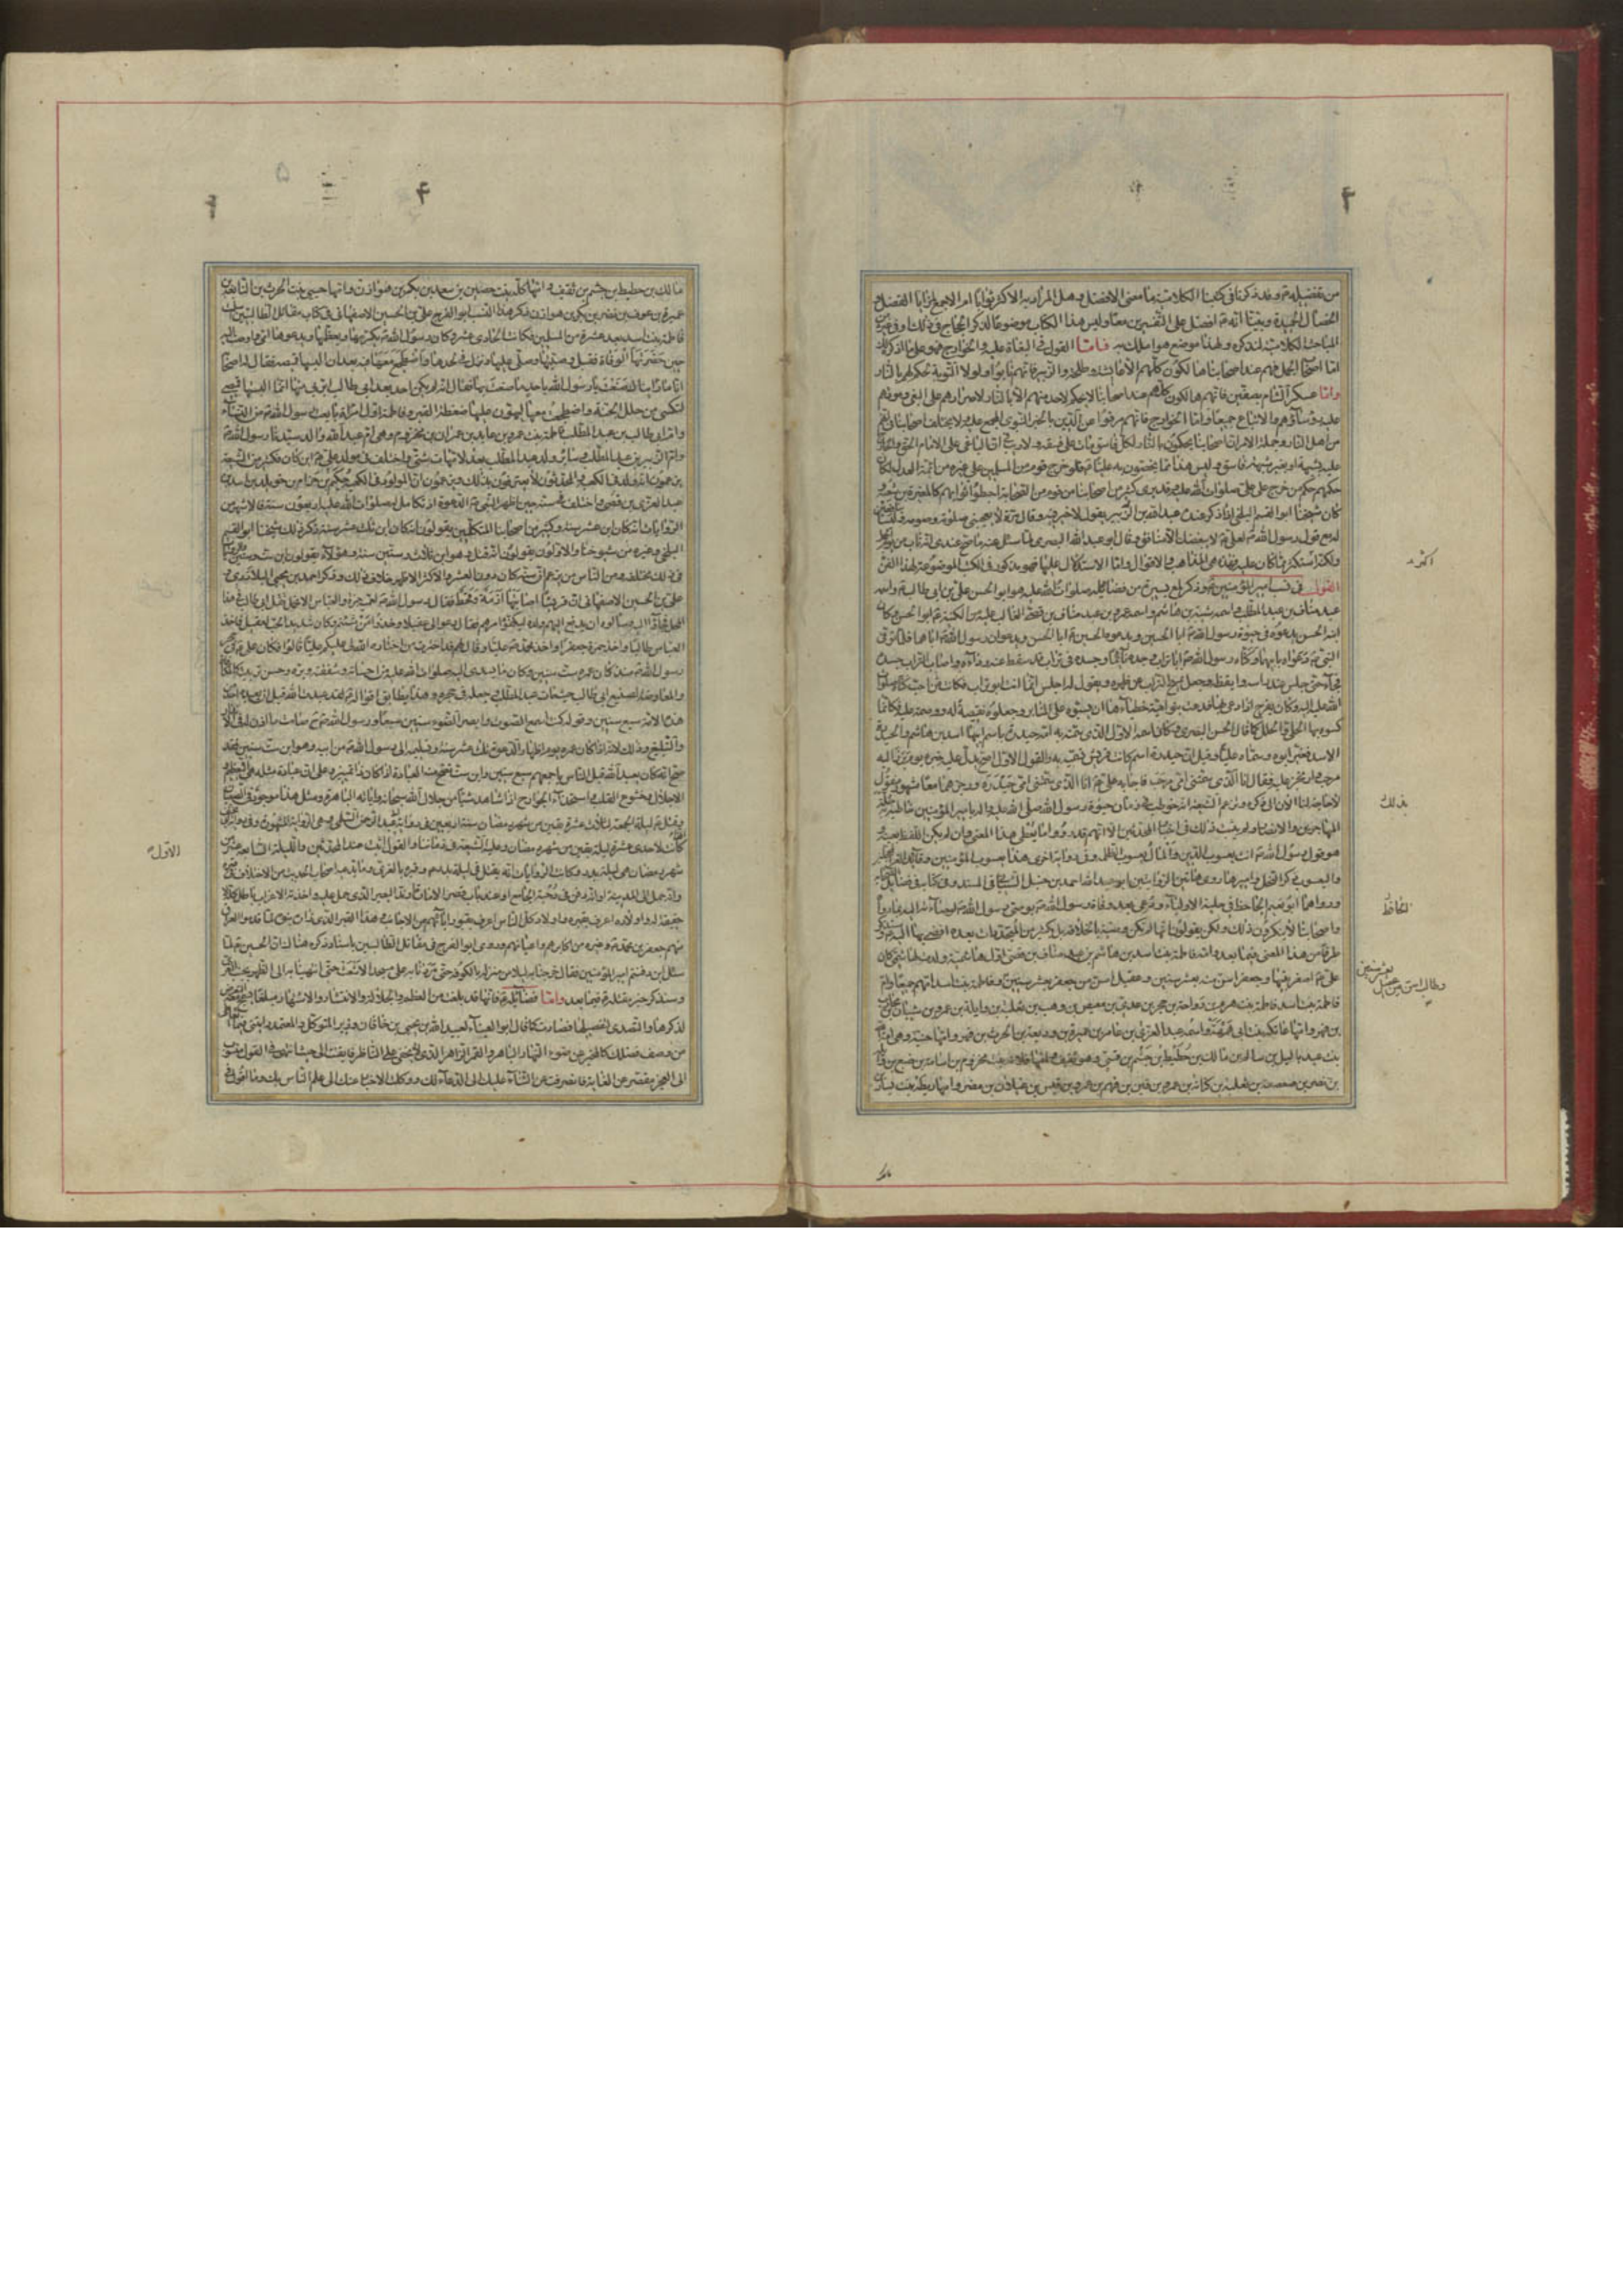 من تفضيله ع وقد ذكرنا في كتبنا الكلامية ما معنى الافضل وهل المراد به الاكثر ثوابا ام الاجمع لمزايا الفضل و
الخصال الحميدة وبينا انه ع افضل على التفسيرين معا وليس هذا الكتاب موضوعا لذكر الحجاج في ذلك او في غيره من
المباحث الكلامية لنذكره ولهذا موضع هو املك به فامّا القول في البغاة عليه والخوارج فهو على ما اذكره لك
امّا اصحاب الجمل فهم عند اصحابنا هالكون كلهم الا عايشة وطلحة والزبير فانهم تابوا ولولا التوبة لحكم لهم بالنار
وامّا عسكر الشام بصفين فانهم هالكون كلهم عند اصحابنا لا يحكم لاحد منهم الا بالنار لاصرارهم على البغي وموتهم
عليه رؤساؤهم والاتباع جميعا وامّا الخوارج فانهم مرقوا عن الدين بالخبر النبوي المجمع عليه ولا يختلف اصحابنا في انهم
من اهل النار وجملة الامر ان اصحابنا يحكمون بالنار لكل فاسق مات على فسقه ولا ريب في ان الباغي على الامام الحق والخارج
عليه بشبهة او بغير شبهة فاسق وليس هذا مما يخصون به عليا ع فلو خرج قوم من المسلمين على غيره من ائمة العدل لكان
حكمهم حكم من خرج على علي صلوات الله عليه وقد برئ كثير من اصحابنا من قوم من الصحابة احبطوا ثوابهم كالمغيرة بن شعبة و
كان شيخنا ابو القسم البلخي اذا ذكر عنده عبد الله بن الزبير يقول لا خير فيه وقال مرة لا يعجبني صلوته وصومه وليسا بنافعين
له مع قول رسول الله ص لعلي ع لا يبغضك الا منافق وقال ابو عبد الله البصري لما سئل عنه ما صح عندي انه تاب من يوم الجمل
ولكنه استكثر مما كان عليه فهذه هي المذاهب والاقوال وامّا الاستدلال عليها فهو مذكور في الكتب الموضوعة لهذا الفن
القول في نسب امير المؤمنين ع وذكر لمع يسيرة من فضائله صلوات الله عليه هو ابو الحسن علي بن ابي طالب ع واسمه
عبد مناف بن عبد المطلب واسمه شيبة بن هاشم واسمه عمرو بن عبد مناف بن قصي الغالب عليه من الكنية ع ابو الحسن وكان
ابنه الحسن يدعوه في حيوة رسول الله ص ابا الحسين ويدعوه الحسين ع ابا الحسن ويدعوان رسول الله ص اباهما فلما توفي
النبي ص دعواه بابيهما وكناه رسول الله ص ابا تراب وجده نائما في تراب قد سقط عنه رداءه واصاب التراب جسده
فجاء حتى جلس عند راسه وايقظه وجعل يمسح التراب عن ظهره ويقول له اجلس انما انت ابو تراب فكانت من احب كناه صلوات
الله عليه اليه وكان يفرح اذا دعي بها فدعت بنو امية خطباءها ان يسبوه بها على المنابر وجعلوها نقيصة له ووصمة عليه فكانما
كسوه بها الحلي والحلل كما قال الحسن البصري وكان اسمه الاول الذي سمته به امه حيدرة باسم ابيها اسد بن هاشم والحيدرة
الاسد فغير ابوه وسماه عليا وقيل ان حيدرة اسم كانت قريش تسميه به والقول الاول اصح يدل عليه خبره يوم برز اليه
مرحب وارتجز عليه فقال انا الذي سمتني امي مرحب فاجابه علي ع انا الذي سمتني امي حيدره ورجزهما معا مشهور منقول
لا حاجة لنا الان الى ذكره وتزعم الشيعة انه خوطب في زمان حيوة رسول الله صلى الله عليه واله بامير المؤمنين خاطبه بذلك جلة
المهاجرين والانصار ولم يثبت ذلك في اخبار المحدثين الا انهم قد رووا ما يعطي هذا المعنى وان لم يكن اللفظ بعينه و
هو قول رسول الله ص انت يعسوب الدين والمال يعسوب الظلمة وفي رواية اخرى هذا يعسوب المؤمنين وقائد الغر المحجلين
واليعسوب ذكر النحل واميرها روى هاتين الروايتين ابو عبد الله احمد بن حنبل الشيباني في المسند وفي كتابه في فضائل الصحابة
ورواهما ابو نعيم الحافظ في حلية الاولياء ودعي بعد وفاة رسول الله ص بوصي رسول الله ص لوصاءه اليه بما اراده
واصحابنا لا ينكرون ذلك ولكن يقولون انها لم تكن وصية بالخلافة بل بكثير من المتجددات بعده افضى بها اليه وسنذكر
طرفا من هذا المعنى فيما بعد وامه فاطمة بنت اسد بن هاشم بن عبد مناف بن قصي اول هاشمية ولدت لهاشمي كان
علي ع اصغر بنيها وجعفر اسن منه بعشر سنين وعقيل اسن من جعفر بعشر سنين وفاطمة بنت اسد امهم جميعا وام
فاطمة بنت اسد فاطمة بنت هرم بن رواحة بن حجر بن عبد بن معيص بن وهب بن ثعلبة بن وايلة بن عمرو بن شيبان بن محارب
بن فهر وامها عاتكة بنت ابي همهمة واسمه عبد العزى بن عامر بن عميرة بن وديعة بن الحرث بن فهر وامها حبيبة وهي امة الله
بنت عبد ياليل بن سالم بن مالك بن حطيط بن جشم بن قسي وهو ثقيف وامها فلانة بنت مخزوم بن اسامة بن ضبع بن وائلة
بن نصر بن صعصعة بن ثعلبة بن كنانة بن عمرو بن قين بن فهم بن عمرو بن قيس بن عيلان بن مضر وامها ريطة بنت يسار بن
اكثره
بذلك
الحافظ
وطالب اسن من عقيل بعشر سنين
مالك بن حطيط بن جشم بن ثقيف وامها كلة بنت حصين بن سعد بن بكر بن هوازن وامها حبى بنت الحرث بن النابغة بن
عميرة بن عوف بن نصر بن بكر بن هوازن ذكر هذا النسب ابو الفرج علي بن الحسين الاصفهاني في كتاب مقاتل الطالبيين اسلمت
فاطمة بنت اسد بعد عشرة من المسلمين فكانت الحادي عشر وكان رسول الله ص يكرمها ويعظمها ويدعوها امي واوصت اليه
حين حضرتها الوفاة فقبل وصيتها وصلى عليها ونزل في لحدها واضطجع معها فيه بعد ان البسها قميصه فقال له اصحابه
انا ما رايناك صنعت يا رسول الله باحد ما صنعت بها فقال انه لم يكن احد بعد ابي طالب ابر بي منها انما البستها قميصي
لتكسى من حلل الجنة واضطجعت معها ليهون عليها ضغطة القبر وفاطمة اول امراة بايعت رسول الله ص من النساء
وام ابي طالب بن عبد المطلب فاطمة بنت عمرو بن عايذ بن عمران بن مخزوم وهي ام عبد الله والد سيدنا رسول الله ص
وام الزبير بن عبد المطلب وسائر ولد عبد المطلب بعد لامهات شتى واختلف في مولد علي ع اين كان فكثير من الشيعة
يزعمون انه ولد في الكعبة والمحدثون لا يعترفون بذلك ويزعمون ان المولود في الكعبة حكيم بن حزام بن خويلد بن اسد بن
عبد العزى بن قصي واختلف في سنه حين اظهر النبي ص الدعوة اذ تكامل له صلوات الله عليه اربعون سنة فالاشهر من
الروايات انه كان ابن عشر سنين وكثير من اصحابنا المتكلمين يقولون انه كان ابن ثلث عشر سنة ذكر ذلك شيخنا ابو القسم
البلخي وغيره من شيوخنا والاولون يقولون انه قتل وهو ابن ثلاث وستين سنة وهؤلاء يقولون ابن ست وستين والروايات
في ذلك مختلفة ومن الناس من يزعم ان سنه كان دون العشر والاكثر الاظهر خلاف ذلك وذكر احمد بن يحيى البلاذري و
علي بن الحسين الاصفهاني ان قريشا اصابتها ازمة وقحط فقال رسول الله ص لعميه حمزة والعباس الا نحمل ثقل ابي طالب في هذا
المحل فجاؤا اليه وسالوه ان يدفع اليهم ولده ليكفوه امرهم فقال دعوا لي عقيلا وخذوا من شئتم وكان شديد الحب لعقيل فاخذ
العباس طالبا واخذ حمزة جعفرا واخذ محمد ص عليا وقال لهم قد اخترت من اختاره الله لي عليكم عليا قالوا فكان علي ع في حجر
رسول الله ص منذ كان عمره ست سنين وكان ما يسدي اليه صلوات الله عليه من احسانه وشفقته وبره وحسن تربيته كالمكافاة
والمعاوضة لصنيع ابي طالب حيث مات عبد المطلب وجعله في حجره وهذا يطابق قوله ع لقد عبدت الله قبل ان يعبده احد من
هذه الامة سبع سنين وقوله كنت اسمع الصوت وابصر الضوء سنين سبعا ورسول الله ص ح صامت ما اذن له في الانذار
والتبليغ وذلك لانه اذا كان عمره يوم اظهار الدعوة ثلث عشر سنة وتسليمه الى رسول الله ص من ابيه وهو ابن ست سنين فقد
صح انه كان يعبد الله قبل الناس باجمعهم سبع سنين وابن ست تصح منه العبادة اذا كان ذا تمييز وعلى ان عبادة مثله هي التعظيم و
الاجلال وخشوع القلب واستخذاء الجوارح اذا شاهد شيئا من جلال الله سبحانه واياته الباهرة ومثل هذا موجود في الصبيان
وقتل ع ليلة الجمعة لثلاث عشرة بقين من شهر رمضان سنة اربعين في رواية ابي عبد الرحمن السلمي وهي الرواية المشهورة وفي رواية ابي مخنف
كانت لاحدى عشرة ليلة بقين من شهر رمضان وعليه الشيعة في زماننا والقول اثبت عند المحدثين والليلة السابعة عشر من
شهر رمضان هي ليلة بدر وكانت الروايات انه يقتل في ليلة بدر ع وقبره بالغري وما يدعيه اصحاب الحديث من الاختلاف في قبره
وانه حمل الى المدينة او انه دفن في رحبة الجامع او عند باب قصر الامارة او ند البعير الذي حمل عليه واخذته الاعراب باطل كله لا
حقيقة له واولاده اعرف بقبره واولاد كل الناس اعرف بقبور ابائهم من الاجانب وهذا القبر الذي زاره بنوه لما قدموا العراق
منهم جعفر بن محمد ع وغيره من اكابرهم واعيانهم وروى ابو الفرج في مقاتل الطالبيين باسناد ذكره هناك ان الحسين ع لما
سئل اين دفنتم امير المؤمنين فقال خرجنا به ليلا من منزله بالكوفة حتى مررنا به على مسجد الاشعث حتى انتهينا به الى الظهر بجنب الغري
وسنذكر خبر مقتله ع فيما بعد وامّا فضائله ع فانها قد بلغت من العظم والجلالة والانتشار والاشتهار مبلغا يسمج معه التعرض
لذكرها والتصدي لتفصيلها فصارت كما قال ابو العيناء لعبيد الله بن يحيى بن خاقان وزير المتوكل والمعتمد رايتني فيما اتعاطى
من وصف فضلك كالمخبر عن ضوء النهار الباهر والقمر الزاهر الذي لا يخفى على الناظر فايقنت اني حيث انتهى بي القول منسوب
الى العجز مقصر عن الغاية فانصرفت عن الثناء عليك الى الدعاء لك ووكلت الاخبار عنك الى علم الناس بك وما اقول في
الاول